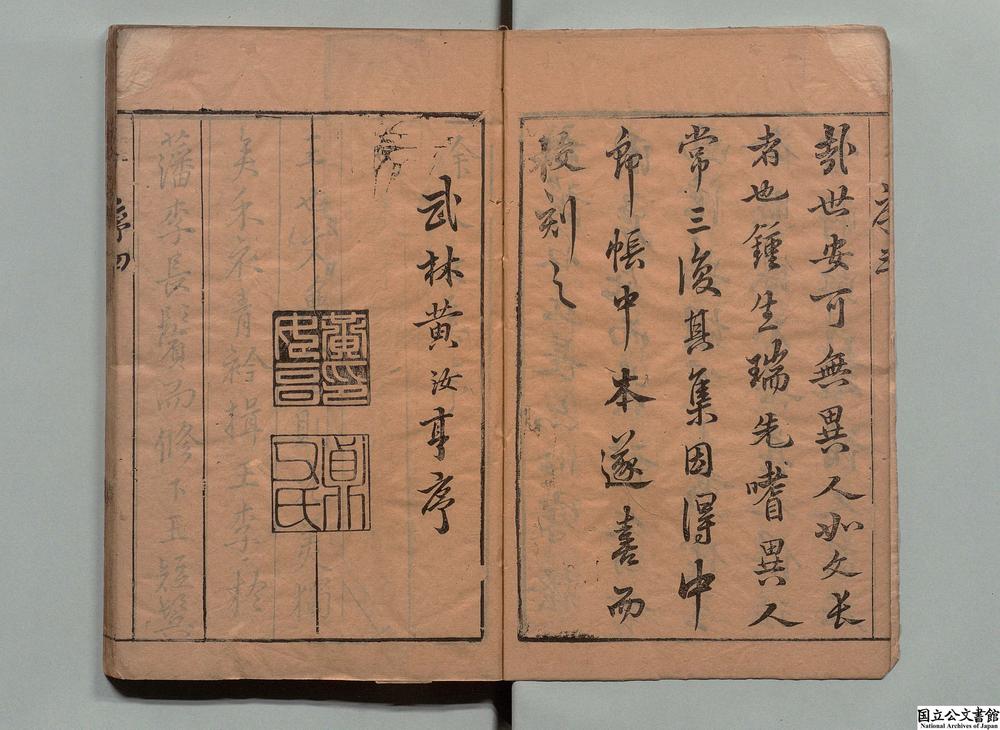 序三
世安可無異人如文長
者也鍾生瑞先嗜異人
常三復其集因得中
郎帳中本遂喜而
校刻之
武林黃汝亨序
黃印汝亨
貞父氏
序四
国立公文書館
National Archives of Japan